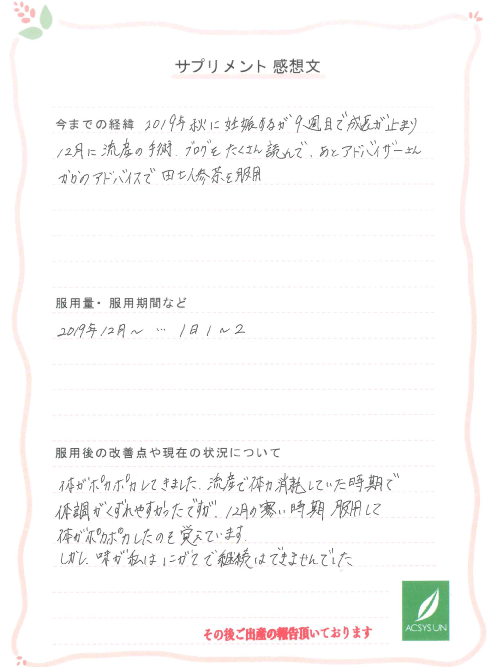 サプリメント 感想文
今までの経緯 2019年秋に妊娠するが9週目で成長が止まり
12月に流産の手術。ブログをたくさん読んで、あとアドバイザーさん
からのアドバイスで田七人参茶を服用
服用量・服用期間など
2019年12月〜 … 1日1〜2
服用後の改善点や現在の状況について
体がポカポカしてきました。流産で体力消耗していた時期で
体調がくずれやすかったですが、12月の寒い時期 服用して
体がポカポカしたのを覚えています。
しかし、味が私はにがてで継続はできませんでした。
ACSYSUN
その後ご出産の報告頂いております